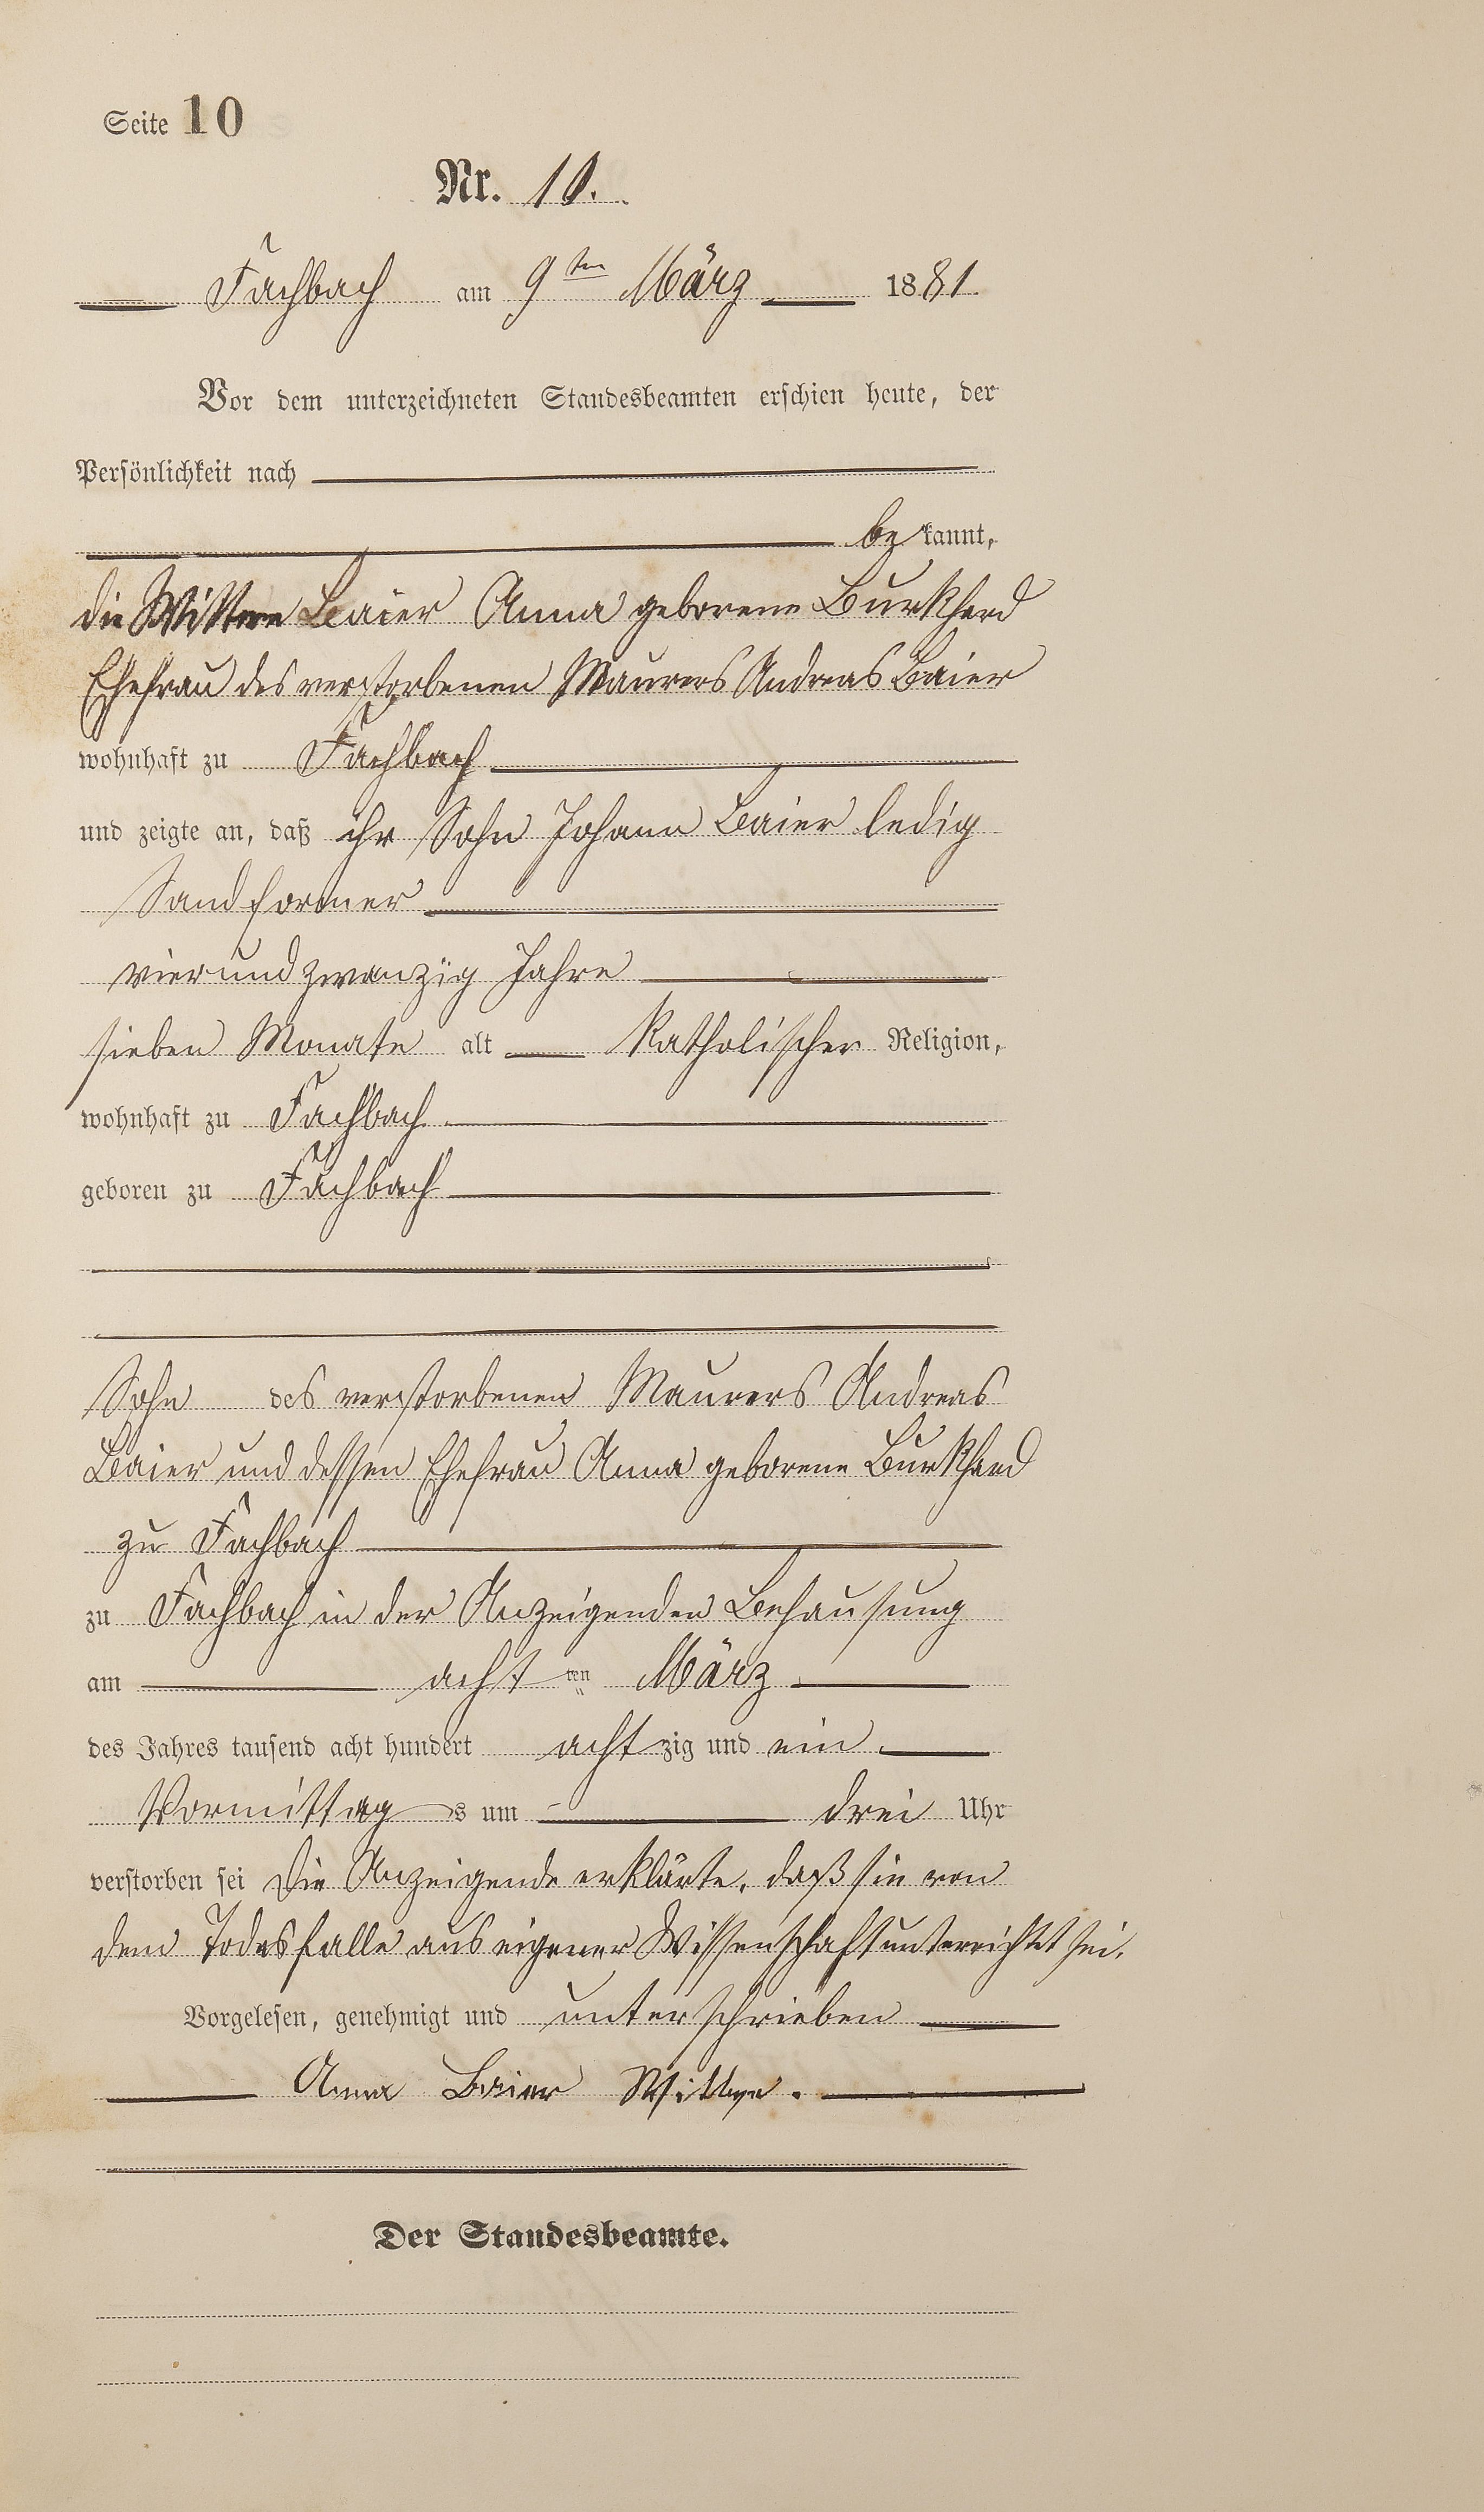 Seite 10
Nr. 10.
Fachbach am 9ten März 1881.
Vor dem unterzeichneten Standesbeamten erschien heute, der
Persönlichkeit nach
bekannt,
die Wittwe Baier Anna geborene Burkhard
Ehefrau des verstorbenen Maurers Andreas Baier
wohnhaft zu Fachbach
und zeigte an, daß ihr Sohn Johann Baier ledig
Sandformer
vierundzwanzig Jahre
sieben Monate alt katholischer Religion,
wohnhaft zu Fachbach
geboren zu Fachbach
Sohn des verstorbenen Maurers Andreas
Baier und dessen Ehefrau Anna geborene Burkhard
zu Fachbach
zu Fachbach in der Anzeigenden Behausung
am achtten März
des Jahres tausend acht hundert achtzig und ein
Vormittags um drei Uhr
verstorben sei Die Anzeigende erklärte, daß sie von
dem Todesfalle aus eigener Wissenschaft unterrichtet sei.
Vorgelesen, genehmigt und unterschrieben
Anna Baier Wittwe.
Der Standesbeamte.